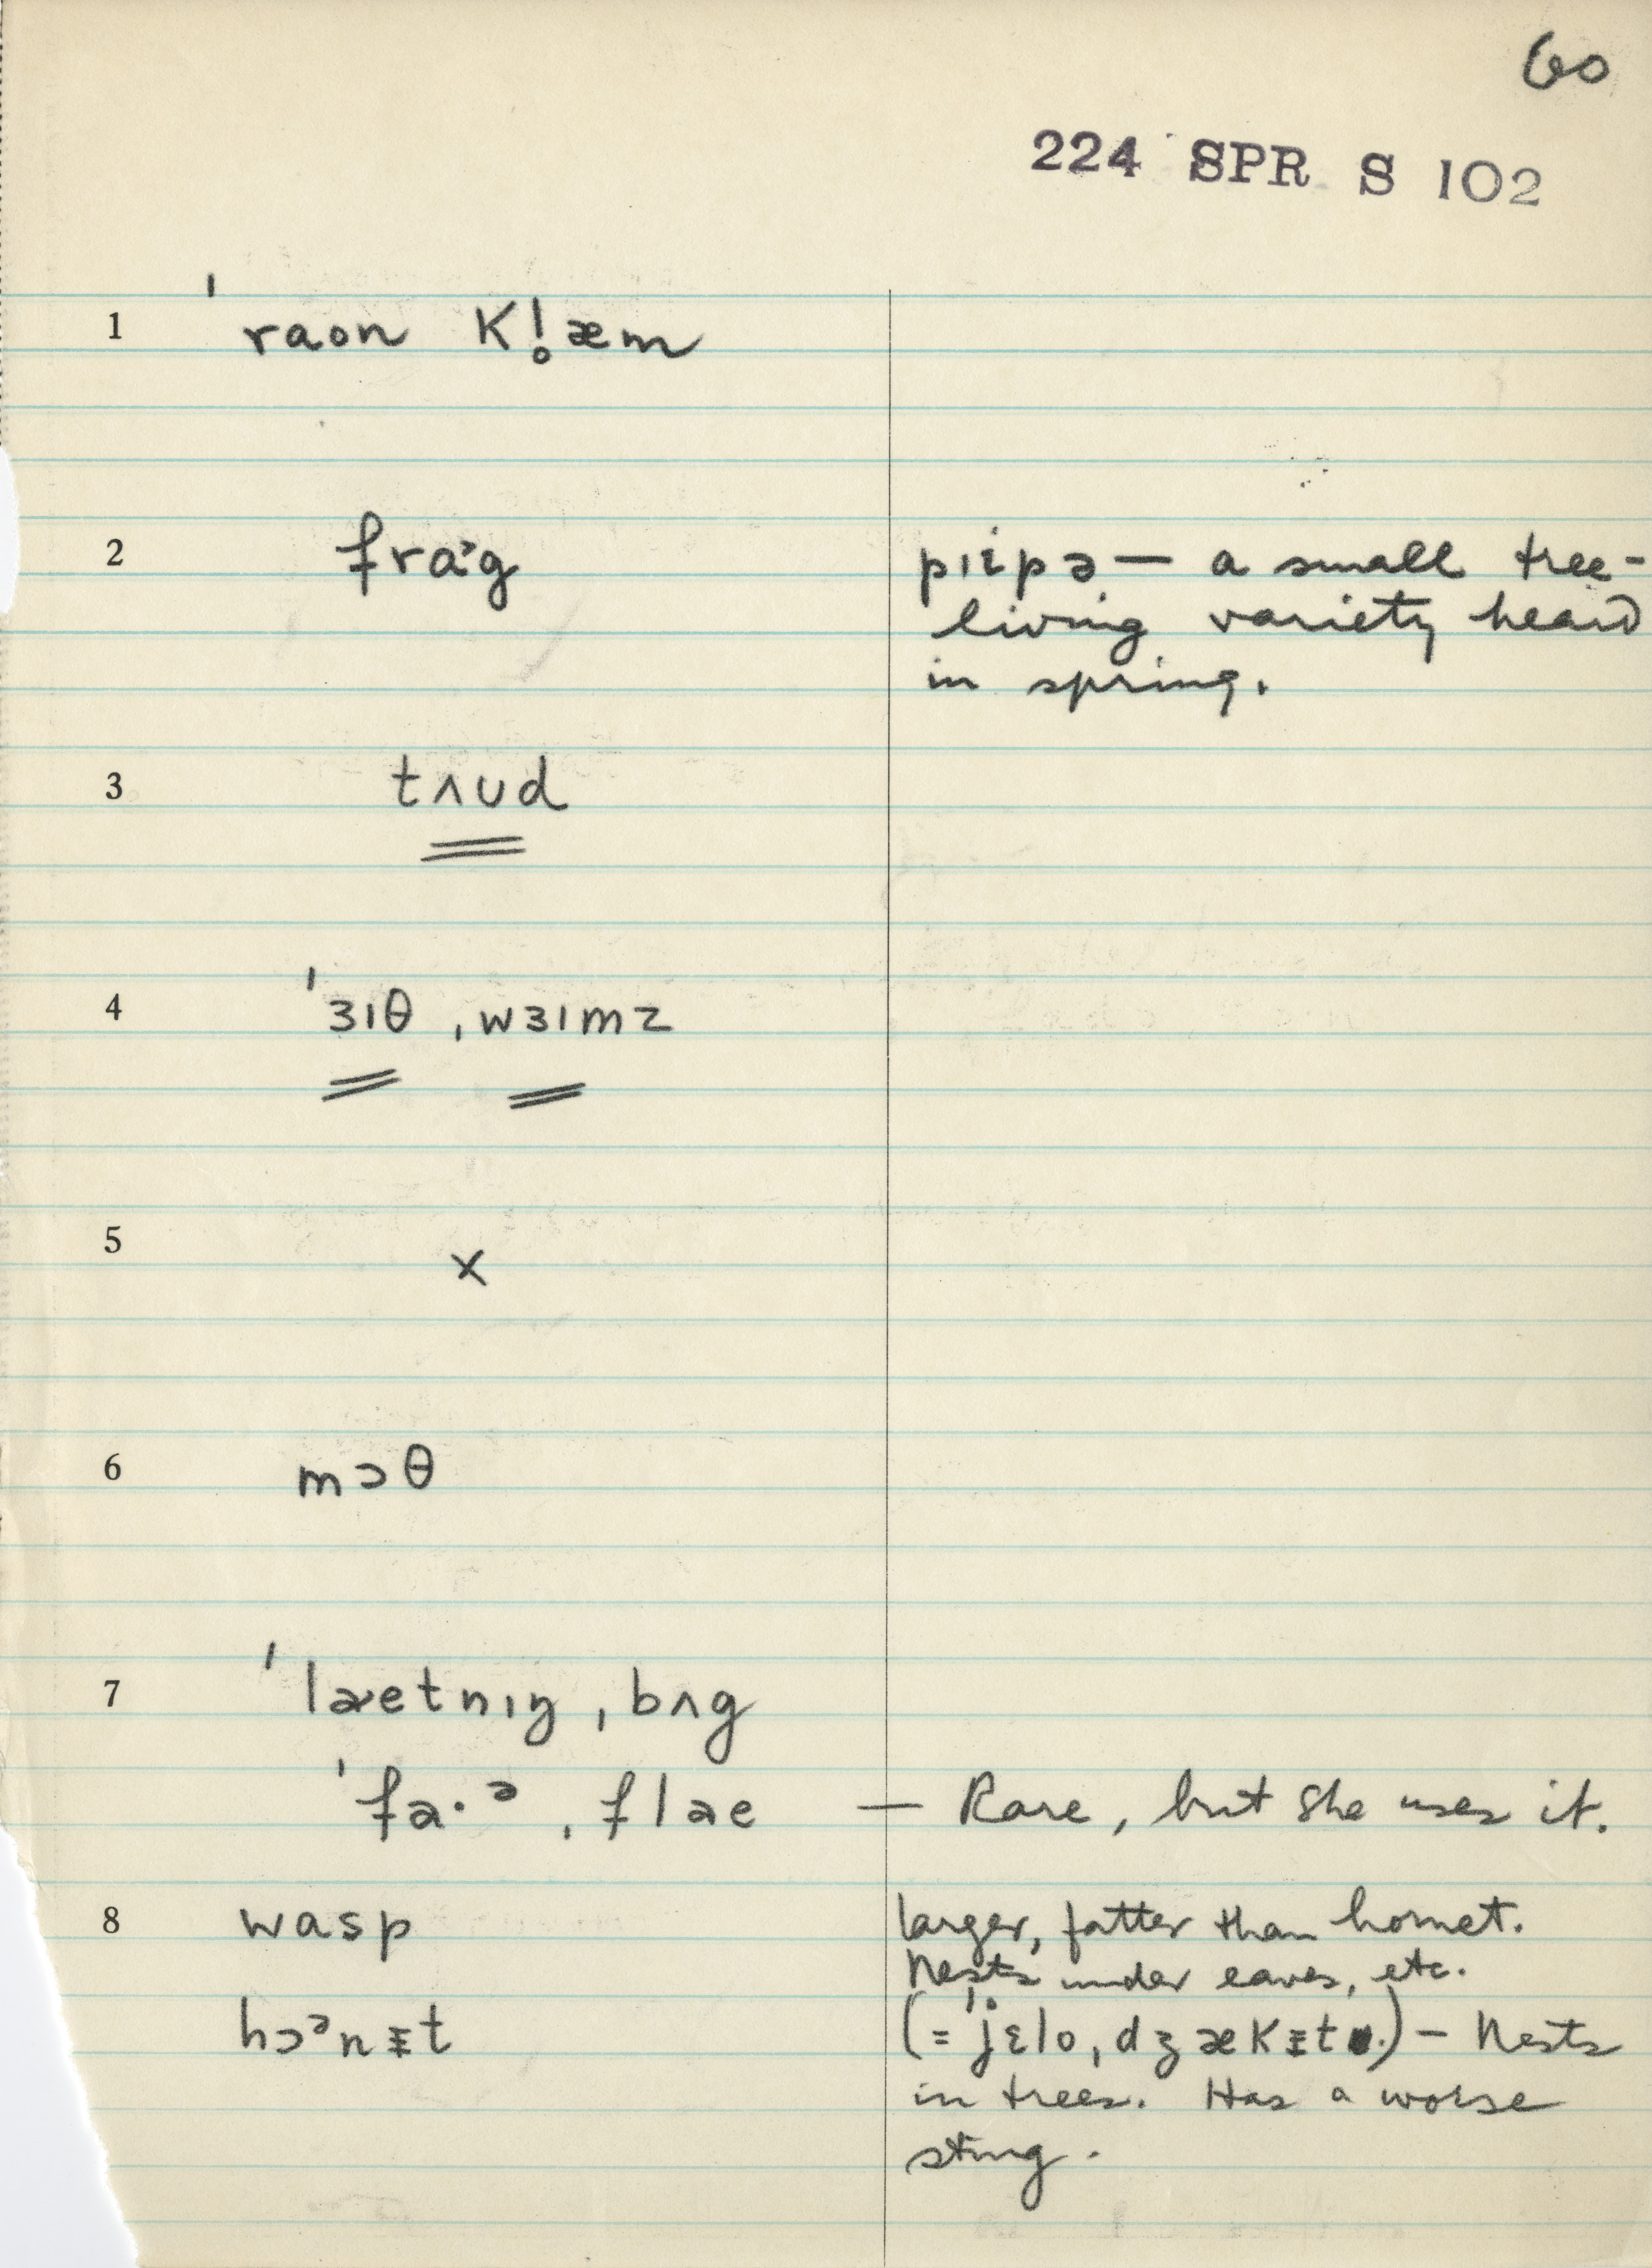 60
224 SPR S 102
1 ˈraon kl̥æm
2 frɑˑᵊg pɪɨpə — a small tree-
living variety heard
in spring.
3 tʌud
4 ˈɜɪθ ˌwɜɪmz
5 x
6 mɔθ
7 ˈlaetnɪŋ ˌbʌg
ˈfa·ᵊ ˌflae — Rare, but she uses it.
8 wasp larger, fatter than hornet.
Nests under eaves, etc.
hɔᵊnɨt (= ˈjɛlo ˌdʒækɨt) — Nests
in trees. Has a worse
sting.